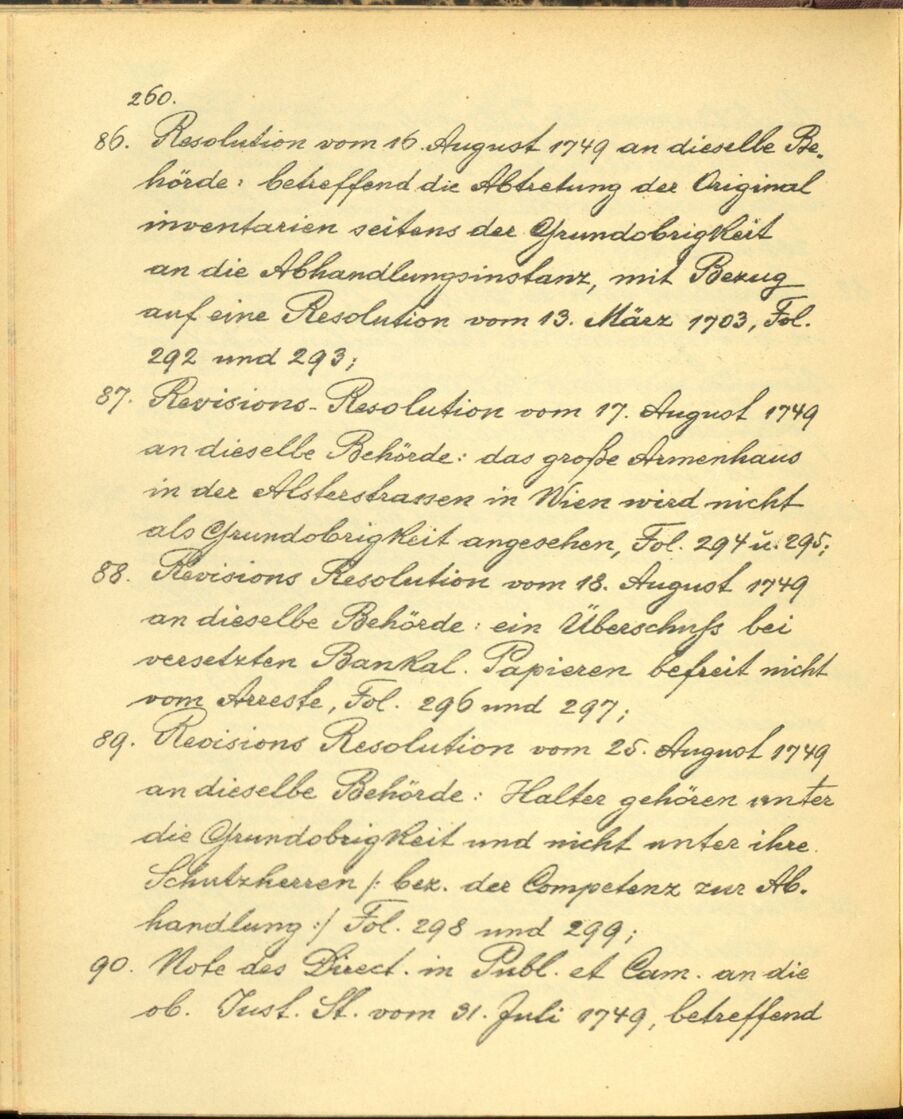 260.
86. Resolution vom 16. August 1749 an dieselbe Be-
hörde: betreffend die Abtretung der Original
inventarien seitens der Grundobrigkeit
an die Abhandlungsinstanz, mit Bezug
auf eine Resolution vom 13. März 1703, Fol.
292 und 293;
87. Revisions-Resolution vom 17. August 1749
an dieselbe Behörde: das große Armenhaus
in der Alsterstrassen in Wien wird nicht
als Grundobrigkeit angesehen, Fol. 294 u. 295;
88. Revisions Resolution vom 18. August 1749
an dieselbe Behörde: ein Überschuß bei
versetzten Bankal. Papieren befreit nicht
vom Arreste, Fol. 296 und 297;
89. Revisions Resolution vom 25. August 1749
an dieselbe Behörde: Halter gehören unter
die Grundobrigkeit und nicht unter ihre
Schutzherren /: bez. der Competenz zur Ab-
handlung :/ Fol. 298 und 299;
90. Note des Direct. in Publ. et Cam. an die
ob. Just. St. vom 31. Juli 1749, betreffend